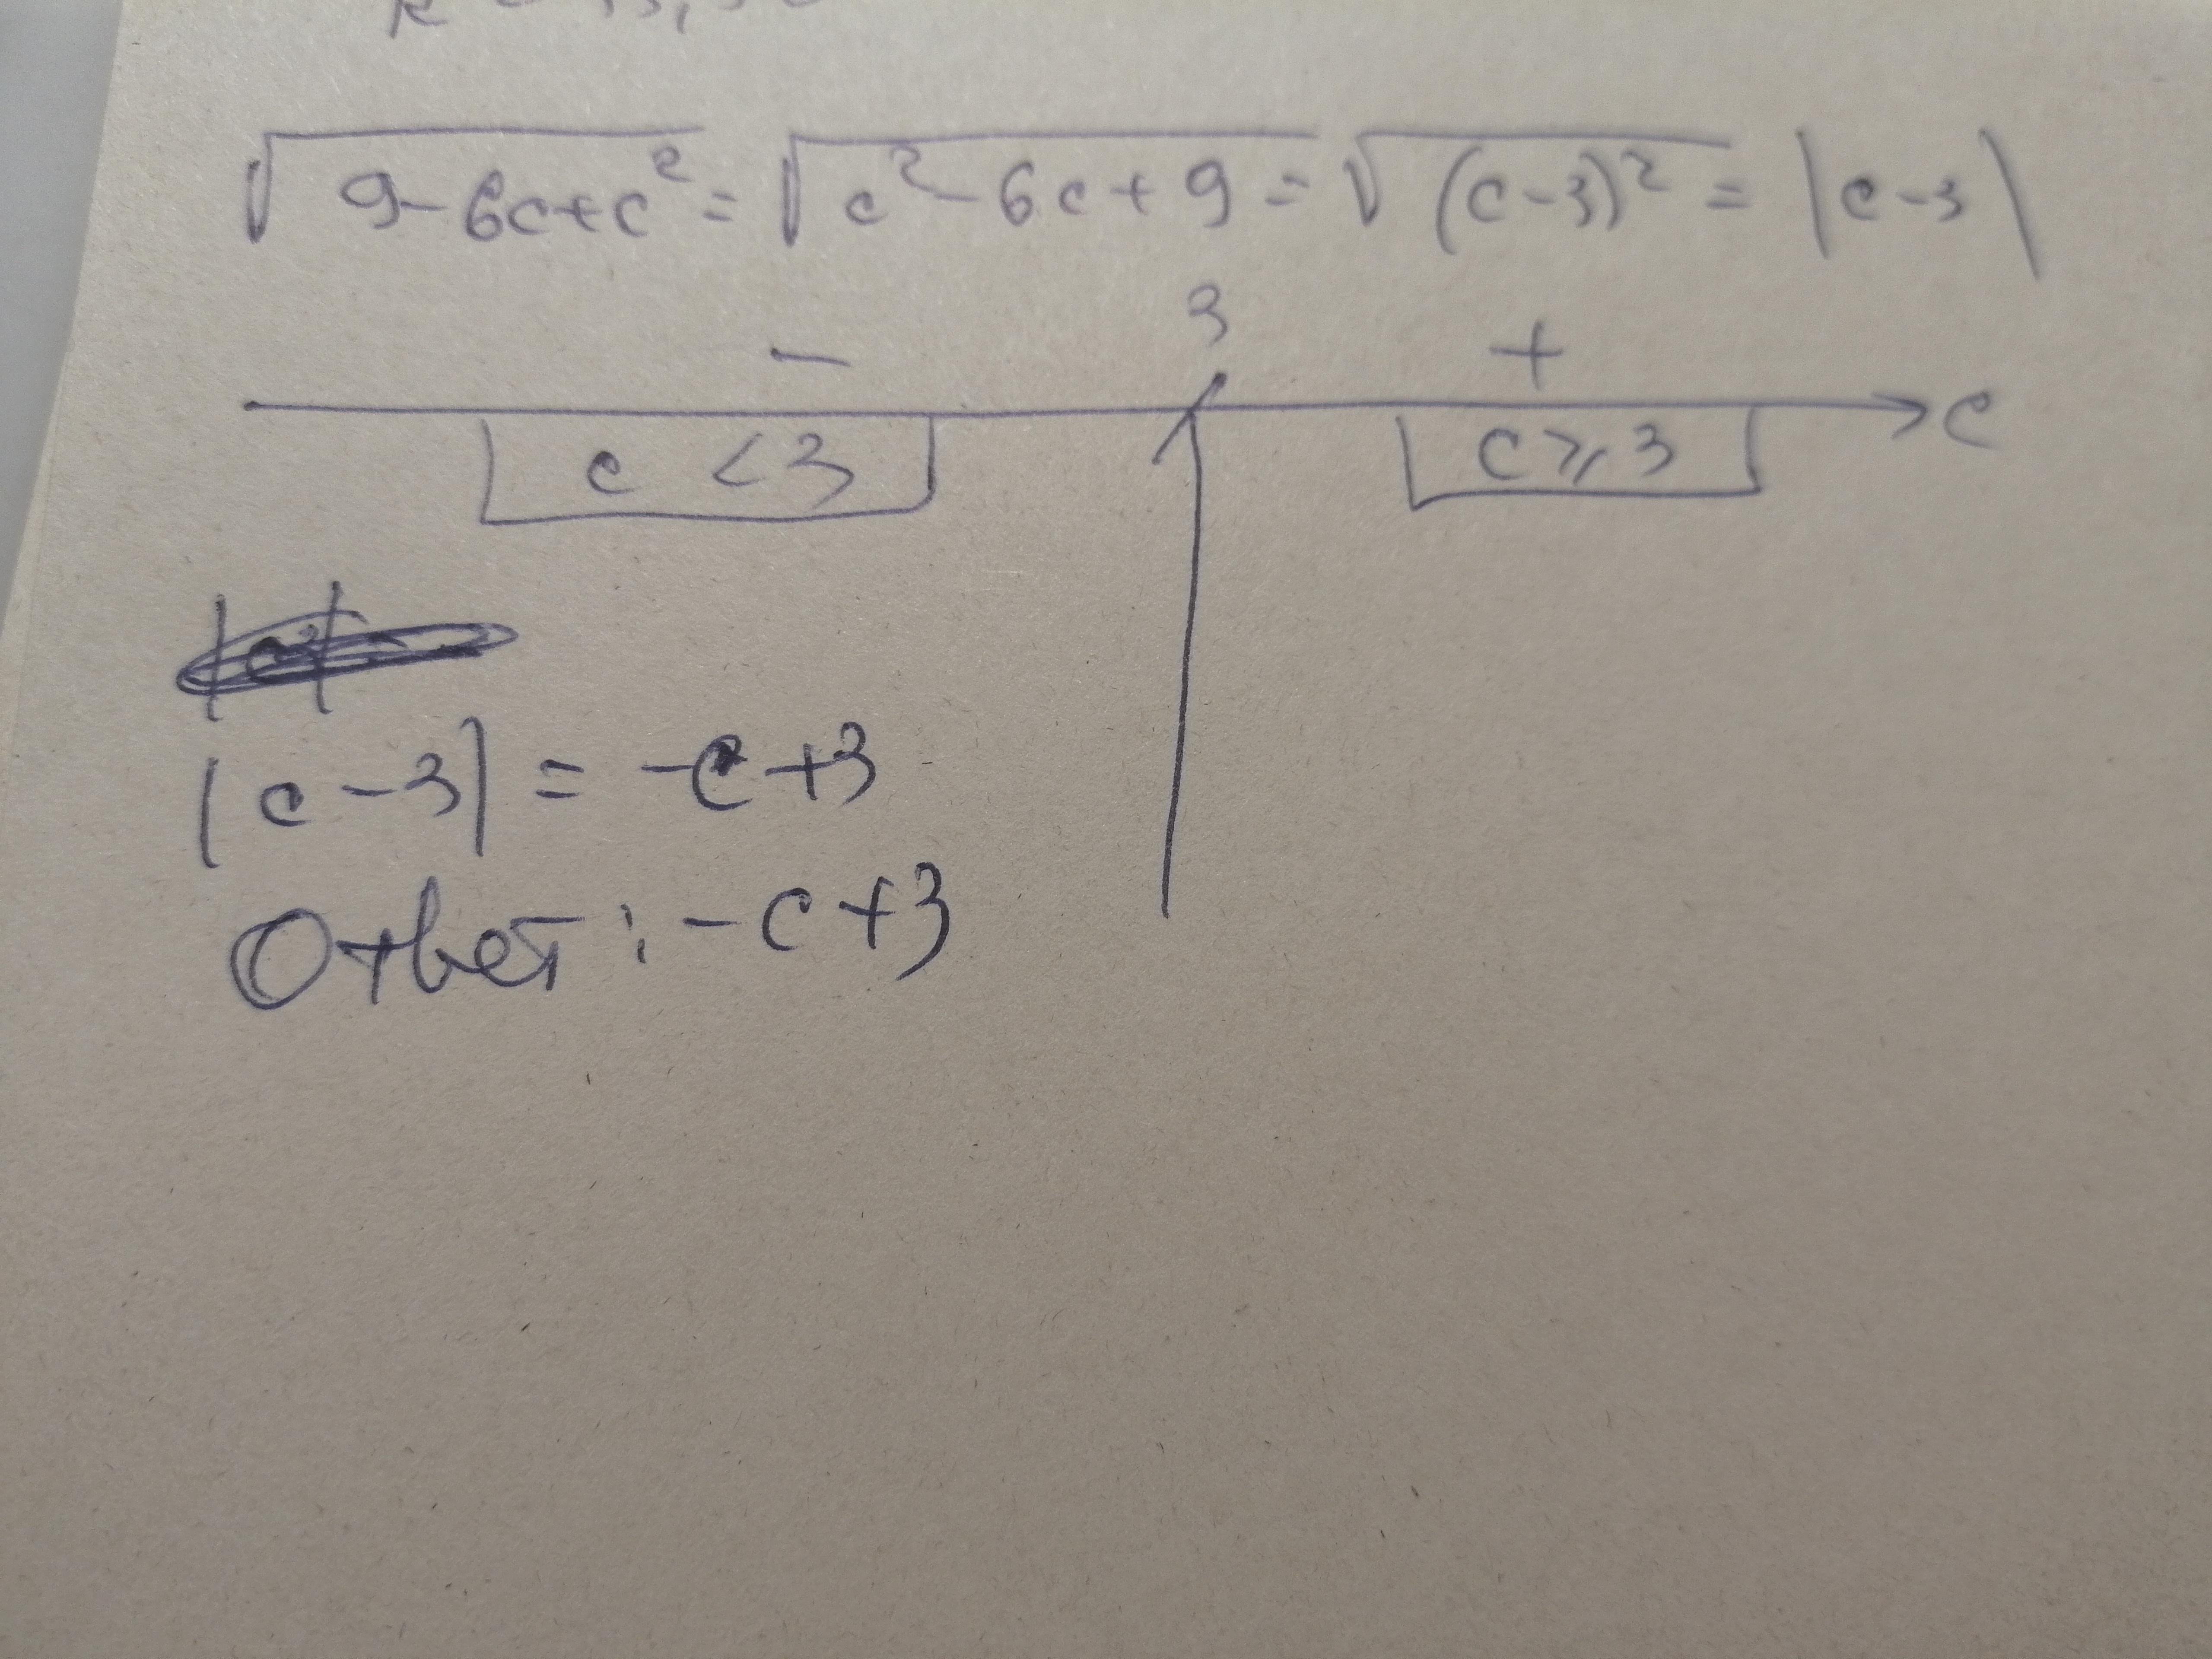 √(9-6c+c²) = √(c²-6c+9) = √((c-3)²) = |c-3|
3
- +
c<3 c⩾3 c
|c-3| = -c+3
Ответ: -c+3